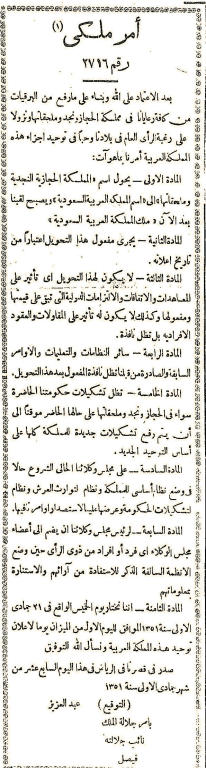 أمر ملكي (١)
رقم ٢٧١٦
بعد الاعتماد على الله وبناء على مارفع من البرقيات
من كافة رعايانا في مملكة الحجاز ونجد وملحقاتها ونزولا
على رغبة الرأى العام في بلادنا وحبا في توحيد اجزاء هذه
المملكة العربية أمرنا بما هو آت :
المادة الاولى — يحول اسم « المملكة الحجازية النجدية
وملحقاتها » الى اسم المملكة العربية السعودية » ويصبح لقبنا
بعد الآن « ملك المملكة العربية السعودية »
المادة الثانية — يجرى مفعول هذا التحويل اعتباراً من
تاريخ اعلانه .
المادة الثالثة — لا يكون لهذا التحويل اى تأثير على
المعاهدات والاتفاقات والالتزامات الدولية التى تبقى على قيمتها
ومفعولها وكذلك لا يكون له تأثير على المقاولات والعقود
الافرادية بل تظل نافذة .
المادة الرابعة — سائر النظامات والتعليمات والاوامر
السابقة والصادرة من قبلنا تظل نافذة المفعول بعد هذا التحويل .
المادة الخامسة — تظل تشكيلات حكومتنا الحاضرة
سواء في الحجاز ونجد وملحقاتها على حالها الحاضر موقتاً الى
أن يتم وضع تشكيلات جديدة للمملكة كلها على
أساس التوحيد الجديد .
المادة السادسة — على مجلس وكلائنا الحالى الشروع حالا
في وضع نظام أساسى للمملكة ونظام لتوارث العرش ونظام
لتشكيلات الحكومة وعرضها علينا لاستصدار اوامرنا فيها .
المادة السابعة — لرئيس مجلس وكلائنا ان يضم الى أعضاء
مجلس الوكلاء اى فرد أو افراد من ذوى الرأى حين وضع
الانظمة السالفة الذكر للاستفادة من آرائهم والاستنارة
بمعلوماتهم
المادة الثامنة — اننا نختار يوم الخميس الواقع في ٢١ جمادى
الاولى سنة ١٣٥١ الموافق لليوم الاول من الميزان يوما لاعلان
توحيد هذه المملكة العربية ونسأل الله التوفيق
صدر في قصرنا في الرياض في هذا اليوم السابع عشر من
شهر جمادى الاولى سنة ١٣٥١
( التوقيع ) عبد العزيز
بامر جلالة الملك
نائب جلالته
فيصل